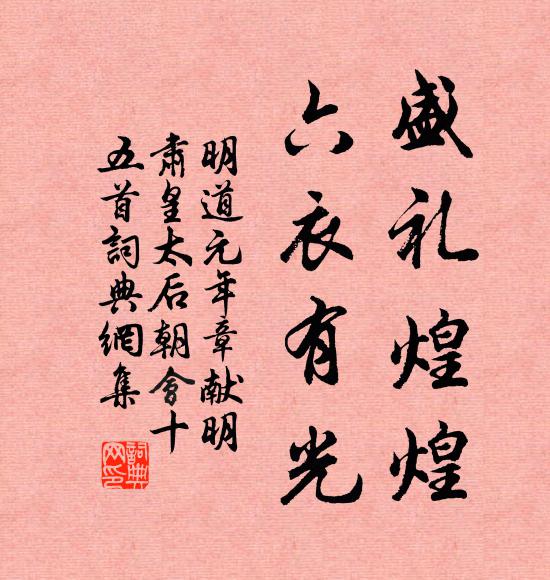 盛礼煌煌
六衣有光
明道元年章献明
肃皇太后朝会十
五首詞典網集
詞典
网印